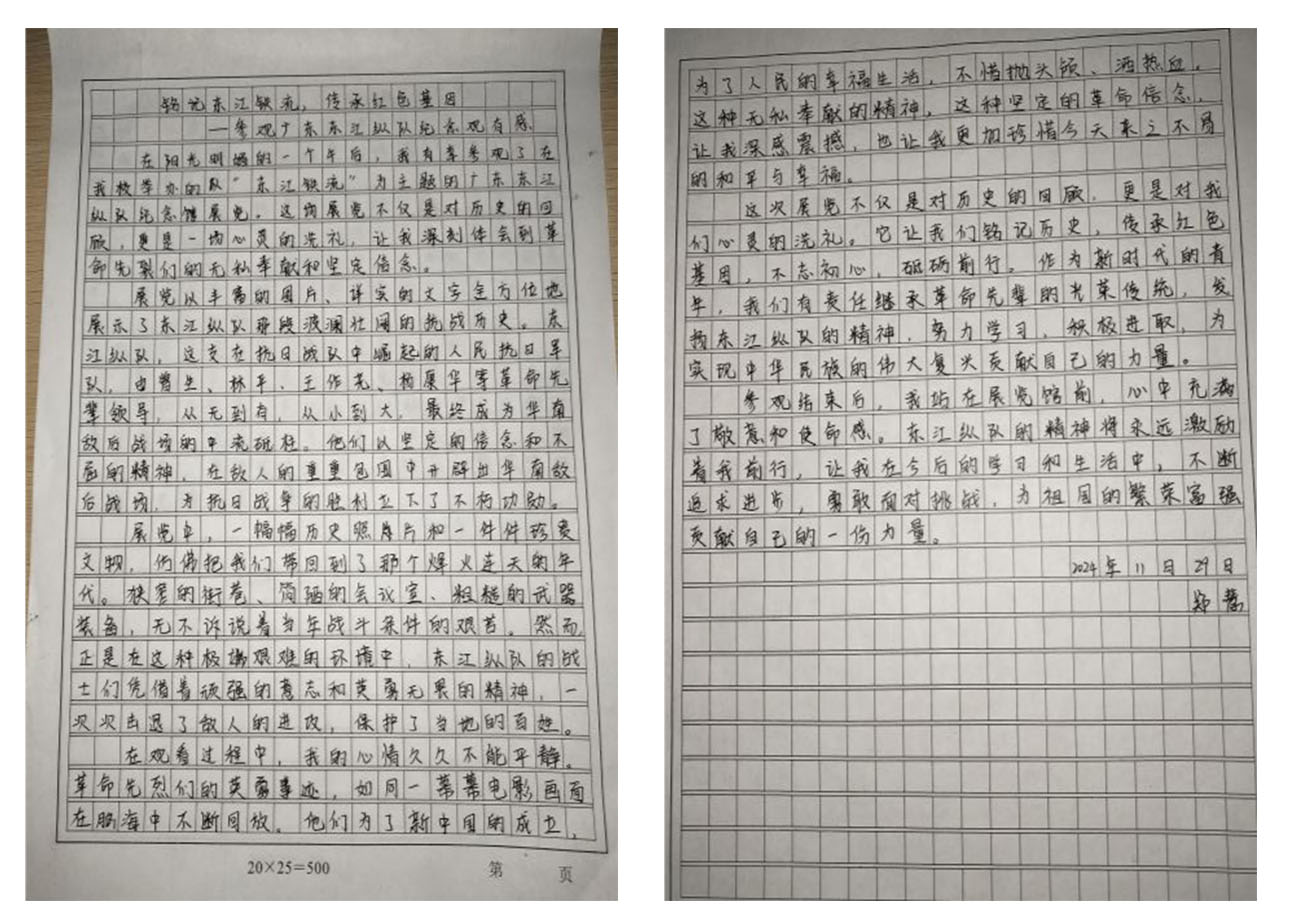 铭记东江铁流，传承红色基因
——参观广东东江纵队纪念观有感
在阳光明媚的一个午后，我有幸参观了在
我校举办的队“东江铁流”为主题的广东东江
纵队纪念馆展览。这场展览不仅是对历史的回
顾，更是一场心灵的洗礼，让我深刻体会到革
命先裂们的无私奉献和坚定信念。
展览以丰富的图片、详实的文字全方位地
展示了东江纵队那段波澜壮阔的抗战历史。东
江纵队，这支在抗日战队中崛起的人民抗日军
队，由曾生、林平、王作尧、杨康华等革命先
辈领导，从无到有，从小到大，最终成为华南
敌后战场的中流砥柱。他们以坚定的信念和不
屈的精神，在敌人的重重包围中开辟出华南敌
后战场，为抗日战争的胜利立下了不朽功勋。
展览中，一幅幅历史照片和一件件珍贵
文物，仿佛把我们带回到了那个烽火连天的年
代。狭窄的街巷、简陋的会议室、粗糙的武器
装备，无不诉说着当年战斗条件的艰苦。然而，
正是在这种极端艰难的环境中，东江纵队的战
士们凭借着顽强的意志和英勇无畏的精神，一
次次击退了敌人的进攻，保护了当地的百姓。
在观看过程中，我的心情久久不能平静。
革命先烈们的英勇事迹，如同一幕幕电影画面
在脑海中不断回放。他们为了新中国的成立，
20×25=500 第 页
为了人民的幸福生活，不惜抛头颅、洒热血，
这种无私奉献的精神，这种坚定的革命信念，
让我深感震撼，也让我更加珍惜今天来之不易
的和平与幸福。
这次展览不仅是对历史的回顾，更是对我
们心灵的洗礼。它让我们铭记历史，传承红色
基因，不忘初心，砥砺前行。作为新时代的青
年，我们有责任继承革命先辈的光荣传统，发
扬东江纵队的精神，努力学习，积极进取，为
实现中华民族的伟大复兴贡献自己的力量。
参观结束后，我站在展览馆前，心中充满
了敬意和使命感。东江纵队的精神将永远激励
着我前行，让我在今后的学习和生活中，不断
追求进步，勇敢面对挑战，为祖国的繁荣富强
贡献自己的一份力量。
2024年11日29日
郑慧